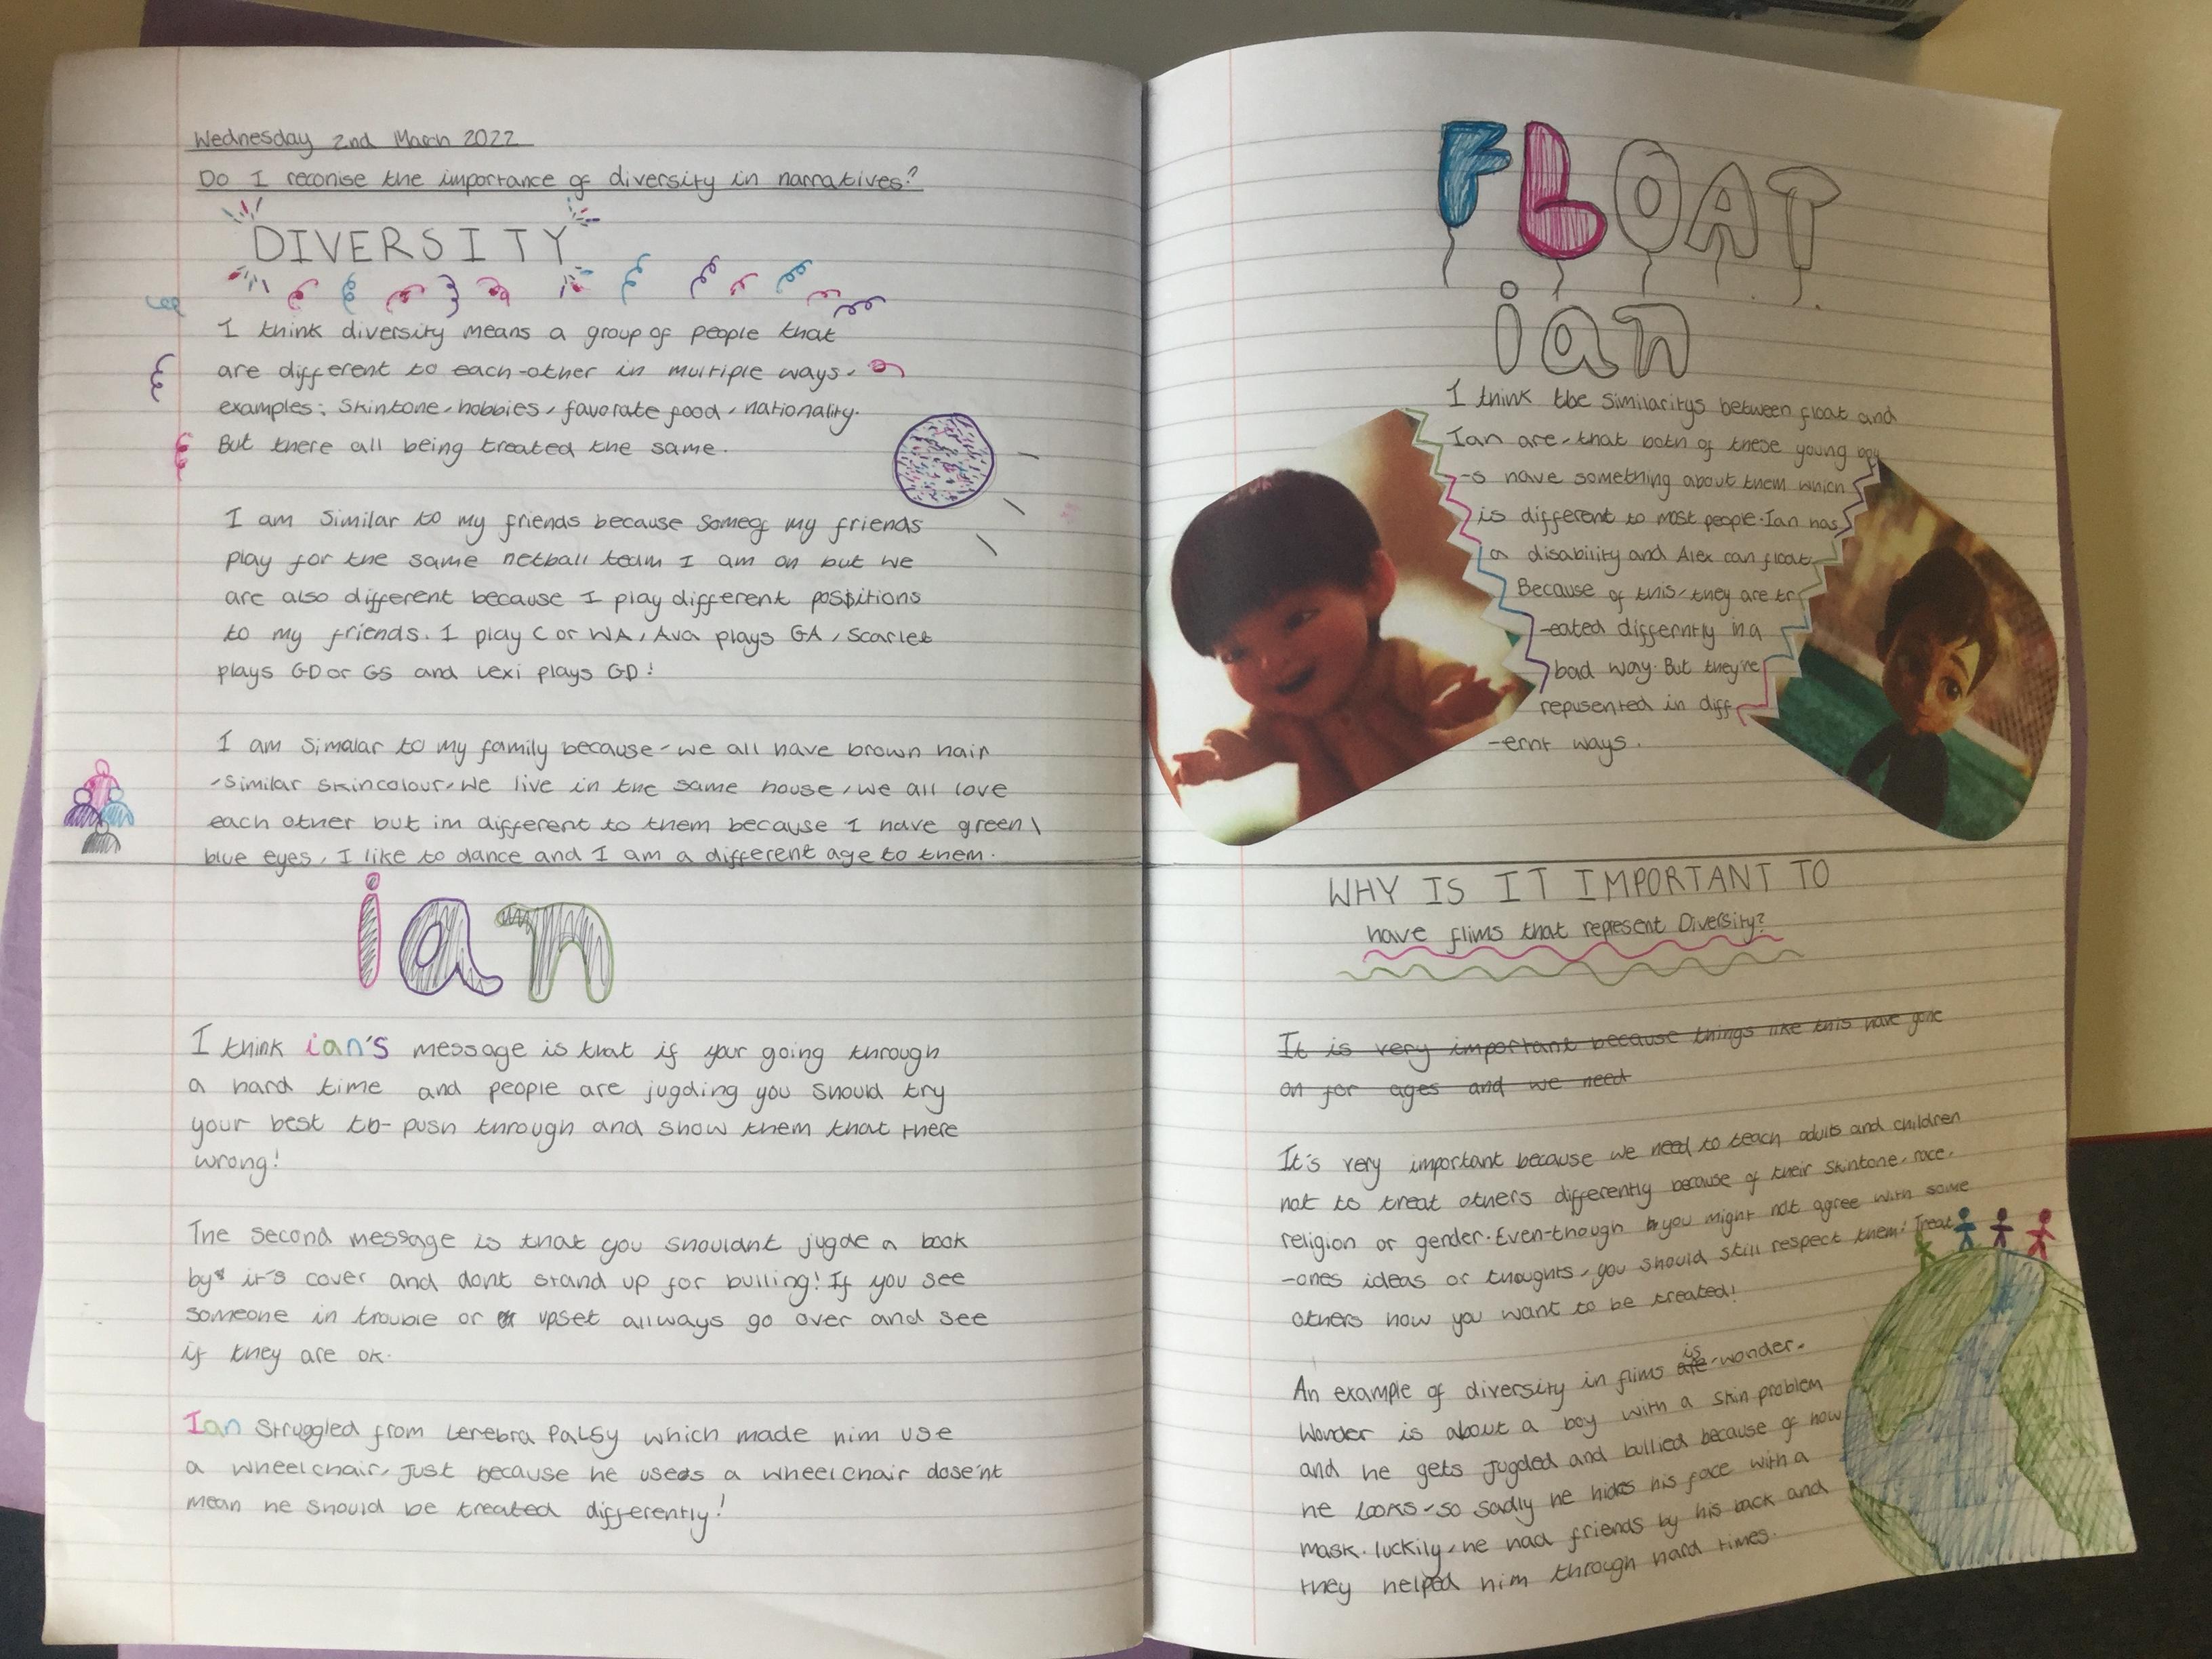 Wednesday 2nd March 2022
Do I reconise the importance of diversity in narratives?
DIVERSITY
I think diversity means a group of people that
are different to each-other in multiple ways.
examples: Skintone, hobbies, favorate food, nationality.
But there all being treated the same.
I am Similar to my friends because Some of my friends
play for the same netball team I am on but we
are also different because I play different possitions
to my friends. I play C or WA, Ava plays GA, Scarlet
plays GD or GS and Lexi plays GD!
I am Simalar to my family because - we all have brown hair
, Similar skincolour, we live in the same house, we all love
each other but im different to them because I have green \
blue eyes, I like to dance and I am a different age to them.
ian
I think ian's message is that if your going through
a hard time and people are jugding you should try
your best to - push through and show them that there
wrong!
The second message is that you shouldnt jugde a book
by it's cover and dont stand up for bulling! If you see
someone in trouble or upset allways go over and see
if they are ok.
Ian Struggled from Cerebra Palsy which made him use
a wheelchair, Just because he uses a wheelchair dose'nt
mean he should be treated differently!
FLOAT
ian
I think the Similaritys between float and
Ian are, that both of these young boy
-s have something about them which
is different to most people. Ian has
a disability and Alex can float.
Because of this, they are tr
-eated differntly in a
bad way. But they're
repusented in diff
-ernt ways.
WHY IS IT IMPORTANT TO
have flims that represent Diversity?
It is very important because things like this have gone
on for ages and we need
It's very important because we need to teach adults and children
not to treat others differently because of their skintone, race,
religion or gender. Even-though you might not agree with some
-ones ideas or thoughts, you should still respect them! Treat
others how you want to be treated!
An example of diversity in flims are is - wonder.
Wonder is about a boy with a skin problem
and he gets jugded and bullied because of how
he looks - so sadly he hides his face with a
mask. luckily, he had friends by his back and
they helped him through hard times.